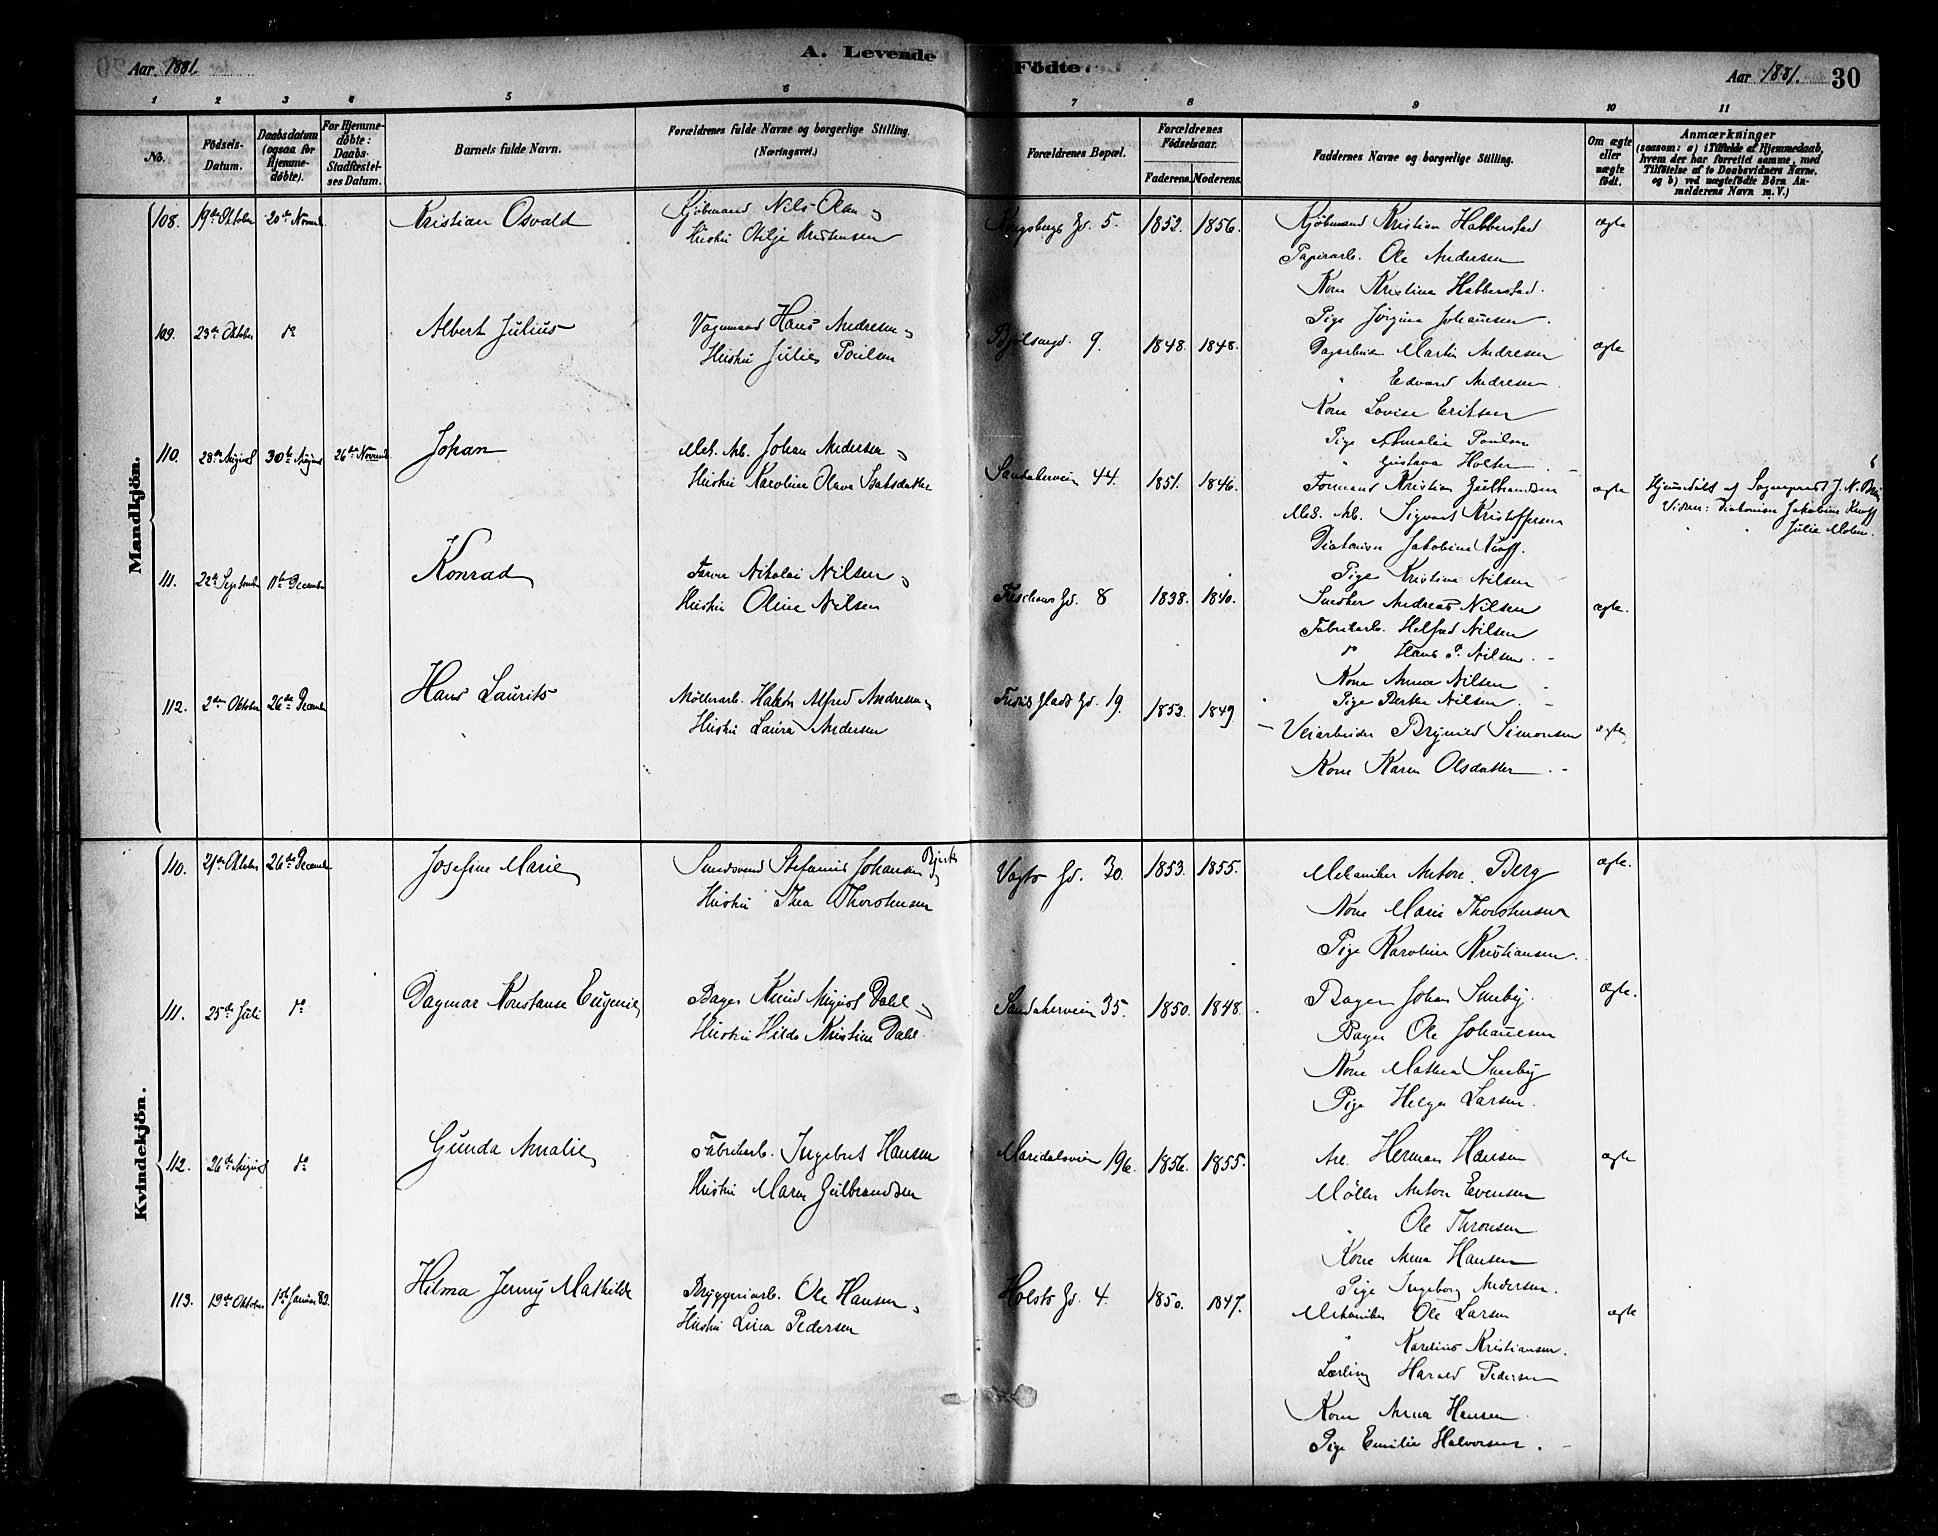 Aar 1881.
A. Levende
Födte.
Aar 1881.
30
1 2 3 4 5 6 7 8 9 10 11
No.
Födsels-Datum.
Daabsdatum (ogsaa for Hjemme-döbte).
For Hjemme-döbte: Daabs-Stadfæstel-ses Datum.
Barnets fulde Navn.
Forældrenes fulde Navne og borgerlige Stilling. (Næringsvei.)
Forældrenes Bopæl.
Forældrenes Födselsaar.
Faderens. Moderens.
Faddernes Navne og borgerlige Stilling.
Om ægte eller uægte födt.
Anmærkninger
(saasom: a) i Tilfælde af Hjemmedaab, hvem der har forrettet samme, med Tilföielse af to Daabsvidners Navne. og b) ved uægtefödte Börn An-melderens Navn m. V.)
Mandkjön.
108. 19de Oktober 20de Novemb Kristian Osvald
Kjöbmand Nils Olsen
Hustru Otilje Kristensen
Kongsbergs Gd. 5. 1852. 1856.
Kjöbmand Kristian Habberstad ægte
Papirarb. Ole Andersen
Kone Kristina Habberstad.
Pige Jörgine Johansen.
109. 23de Oktober do Albert Julius
Vognmand Hans Andresen
Hustru Julie Poulsen
Bjölsengd. 9. 1848. 1848.
Dagarbeider Martin Andresen ægte
" Edvard Andresen
Kone Lovise Eriksen
Pige Amalie Poulsen
" Gustava Holter
110. 28de August 30te August 26de Novemb Johan
Mek. Arb. Johan Andersen
Hustru Karoline Olava Isaksdatter
Sandakerveien 44. 1851. 1846.
Formand Kristian Gulbrandsen ægte
Mek. Arb. Sigvart Kristoffersen
Diakonisse Jakobine Knoff.
Pige Kristine Nilsen
Hjemmedöbt af Sognepræst J. N. Brun
Vidner: Diakonisse Jakobine Knoff
" Julie Molin.
111. 22de September 11te December Konrad
Farver Nikolai Nilsen
Hustru Oline Nilsen
Gd. 8 1838. 1840.
Snedker Andreas Nilsen ægte.
Fabrikarb. Helfred Nilsen
do Hans P. Nilsen.
Kone Anna Nilsen
Pige Berthe Nilsen.
112. 2den Oktober 26de December Hans Laurits
Möllerarb. Alfred Andresen
Hustru Laura Andersen
Glads Gd. 19. 1853. 1849.
Veiarbeider Simonsen ægte
Kone Karen Olsdatter.
Kvindekjön.
110. 21de Oktober 26de December Josefine Marie
Smedsvend Stefanus Johansen Bjerke
Hustru Thea Thorstensen
Vogts Gd. 30. 1853. 1855.
Mekaniker Anton Berg ægte.
Kone Marie Thorstensen
Pige Karoline Kristiansen.
111. 25de Juli do Dagmar Konstanse Eugenie
Bager Knud August Dahl
Hustru Hilda Kristine Dahl.
Sandakerveien 35. 1850. 1848.
Bager Johan Smeby. Ægte.
Bager Ole Johansen
Kone Mathea Smeby
Pige Helga Larsen.
112. 26de August do Gunda Amalie
Fabrikarb. Ingebret Hansen
Hustru Maren Gulbrandsen
Maridalsveien 196. 1856. 1855.
Arb. Herman Hansen ægte
Möller Anton Evensen
" Ole Thronsen
Kone Anna Hansen
Pige Ingeborg Andersen.
113. 19de Oktober 1ste Januar 82. Helma Jenny Mathilde
Bryggeriarb. Ole Hansen
Hustru Lina Pedersen
Holsts Gd. 4. 1850. 1847.
Mekaniker Ole Larsen ægte
" Karelius Kristiansen.
Lærling Harald Pedersen
Kone Anna Hansen.
Pige Emilie Halvorsen.